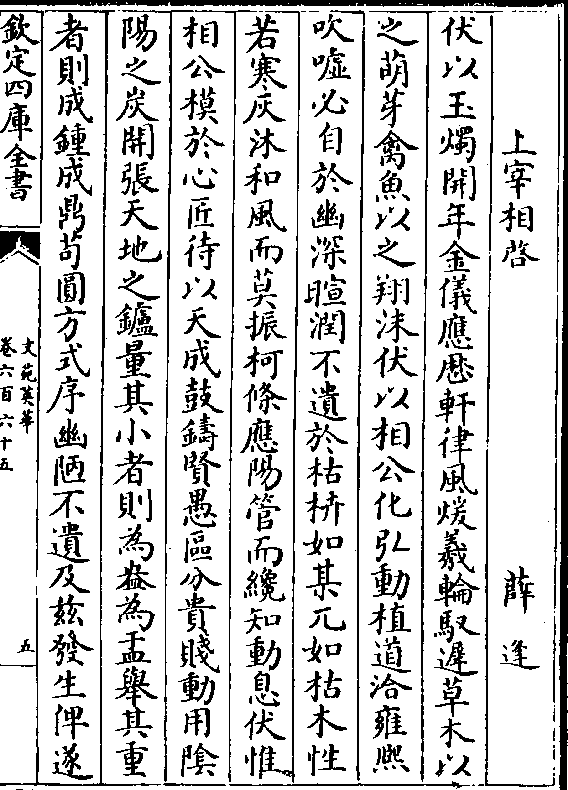 上宰相啓 薛逢
伏以玉燭開年金儀應厯軒律風煖羲輪馭遲草木以
之萌芽禽魚以之翔沬伏以相公化弘動植道洽雍熙
吹噓必自於幽深暄潤不遺於枯枿如某兀如枯木性
若寒灰沐和風而莫振柯條應陽管而纔知動息伏惟
相公模於心匠待以天成鼓鑄賢愚區分貴賤動用陰
陽之炭開張天地之鑪量其小者則為盎為盂舉其重
者則成鍾成鼎苟圓方式序幽陋不遺及兹發生俾遂
欽定四庫全書
文苑英華
卷六百六十五
五